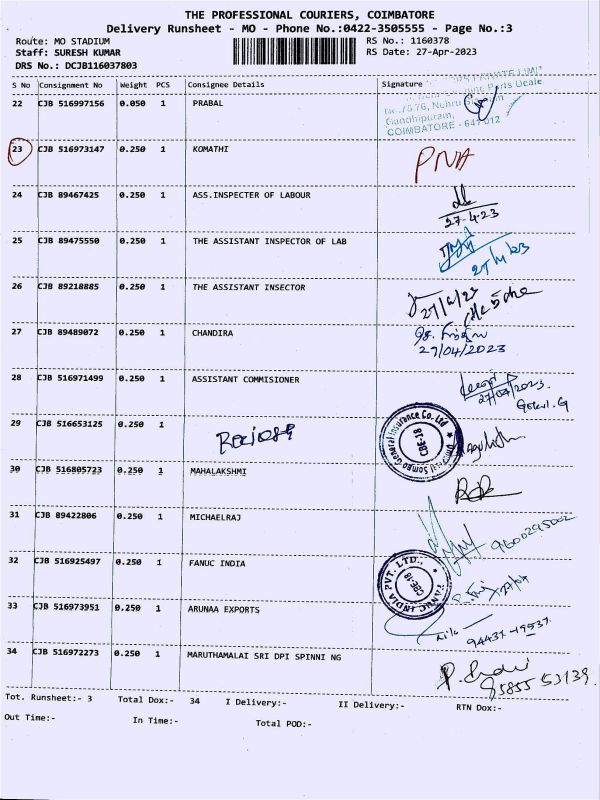 THE PROFESSIONAL COURIERS, COIMBATORE
Delivery Runsheet - MO - Phone No.:0422-3505555 - Page No.:3
Route: MO STADIUM RS No.: 1160378
Staff: SURESH KUMAR RS Date: 27-Apr-2023
DRS No.: DCJB116037803
S No Consignment No Weight PCS Consignee Details Signature
22 CJB 516997156 0.050 1 PRABAL
No.75,76, Nehru
Gandhipuram,
COIMBATORE - 641 012
23 CJB 516973147 0.250 1 KOMATHI PNA
24 CJB 89467425 0.250 1 ASS.INSPECTER OF LABOUR
27-4-23
25 CJB 89475550 0.250 1 THE ASSISTANT INSPECTOR OF LAB
27/4/23
26 CJB 89218885 0.250 1 THE ASSISTANT INSECTOR
27/4/23
27 CJB 89489072 0.250 1 CHANDIRA
27/04/2023
28 CJB 516971499 0.250 1 ASSISTANT COMMISIONER
27/04/2023.
Gokul.G
29 CJB 516653125 0.250 1
Universal Sompo General Insurance Co. Ltd
CBE-18
30 CJB 516805723 0.250 1 MAHALAKSHMI
31 CJB 89422806 0.250 1 MICHAELRAJ
9600295002
32 CJB 516925497 0.250 1 FANUC INDIA
FANUC INDIA PVT. LTD.,
CBE-18
33 CJB 516973951 0.250 1 ARUNAA EXPORTS
94437-19537
34 CJB 516972273 0.250 1 MARUTHAMALAI SRI DPI SPINNI NG
95855 53139
Tot. Runsheet:- 3 Total Dox:- 34 I Delivery:- II Delivery:- RTN Dox:-
Out Time:- In Time:- Total POD:-